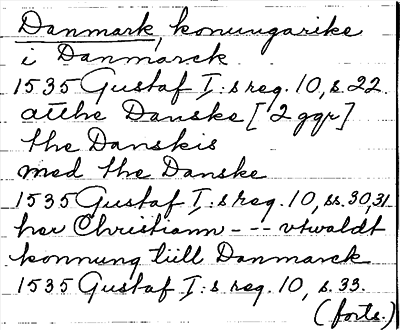 Danmark, konungarike
i Danmarck.
1535 Gustaf I:s reg. 10, s. 22.
atthe Danske [2 ggr]
the Danskis
med the Danske
1535 Gustaf I:s reg. 10, ss. 30, 31.
her Christiann --- vtwaldt
konnung tiill Danmarck
1535 Gustaf I:s reg. 10, s. 33.
(forts.)